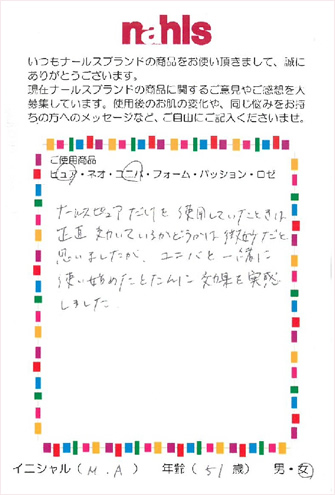 nahls
いつもナールスブランドの商品をお使い頂きまして、誠に
ありがとうございます。
現在ナールスブランドの商品に関するご意見やご感想を大
募集しています。使用後のお肌の変化や、同じ悩みをお持
ちの方へのメッセージなど、ご自由にご記入くださいませ。
ご使用商品
ピュア・ネオ・ユニバ・フォーム・パッション・ロゼ
ナールスピュアだけを使用していたときは
正直効いているかどうかは微妙だと
思いましたが、ユニバと一緒に
使い始めたとたんに効果を実感
しました
イニシャル(M.A) 年齢(51歳) 男・女